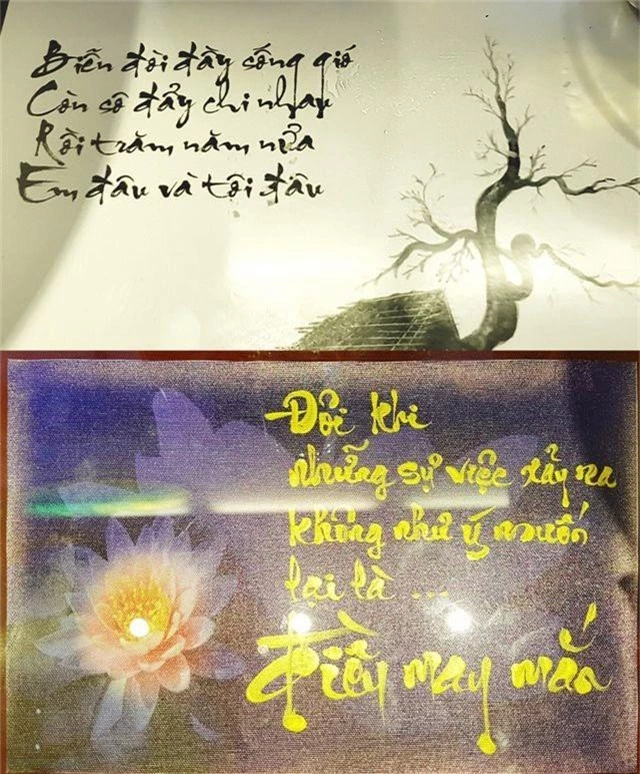 Biển đời đầy sóng gió
Còn sô đẩy chi nhau
Rồi trăm năm nữa
Em đâu và tôi đâu
Đôi khi
những sự việc xảy ra
không như ý muốn
lại là ...
điều may mắn